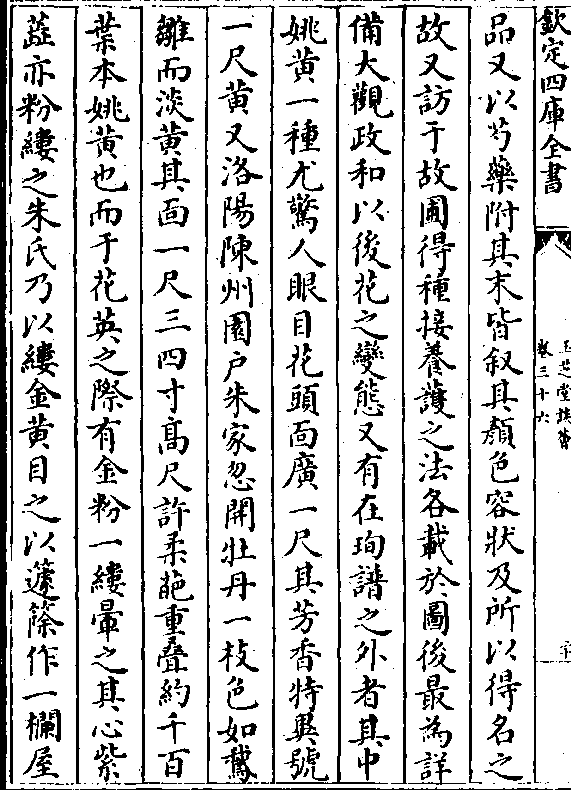 欽定四庫全書
玉芝堂談薈
卷三十六
品又以芍藥附其末皆叙其顏色容狀及所以得名之
故又訪于故圃得種接養護之法各載於圖後最為詳
備大觀政和以後花之變態又有在珣譜之外者其中
姚黄一種尤驚人眼目花頭面廣一尺其芳香特異號
一尺黄又洛陽陳州園户朱家忽開牡丹一枝色如鵝
雛而淡黄其面一尺三四寸髙尺許柔葩重疊約千百
葉本姚黄也而于花英之際有金粉一縷暈之其心紫
蘂亦粉縷之朱氏乃以縷金黄目之以蘧篨作一欄屋